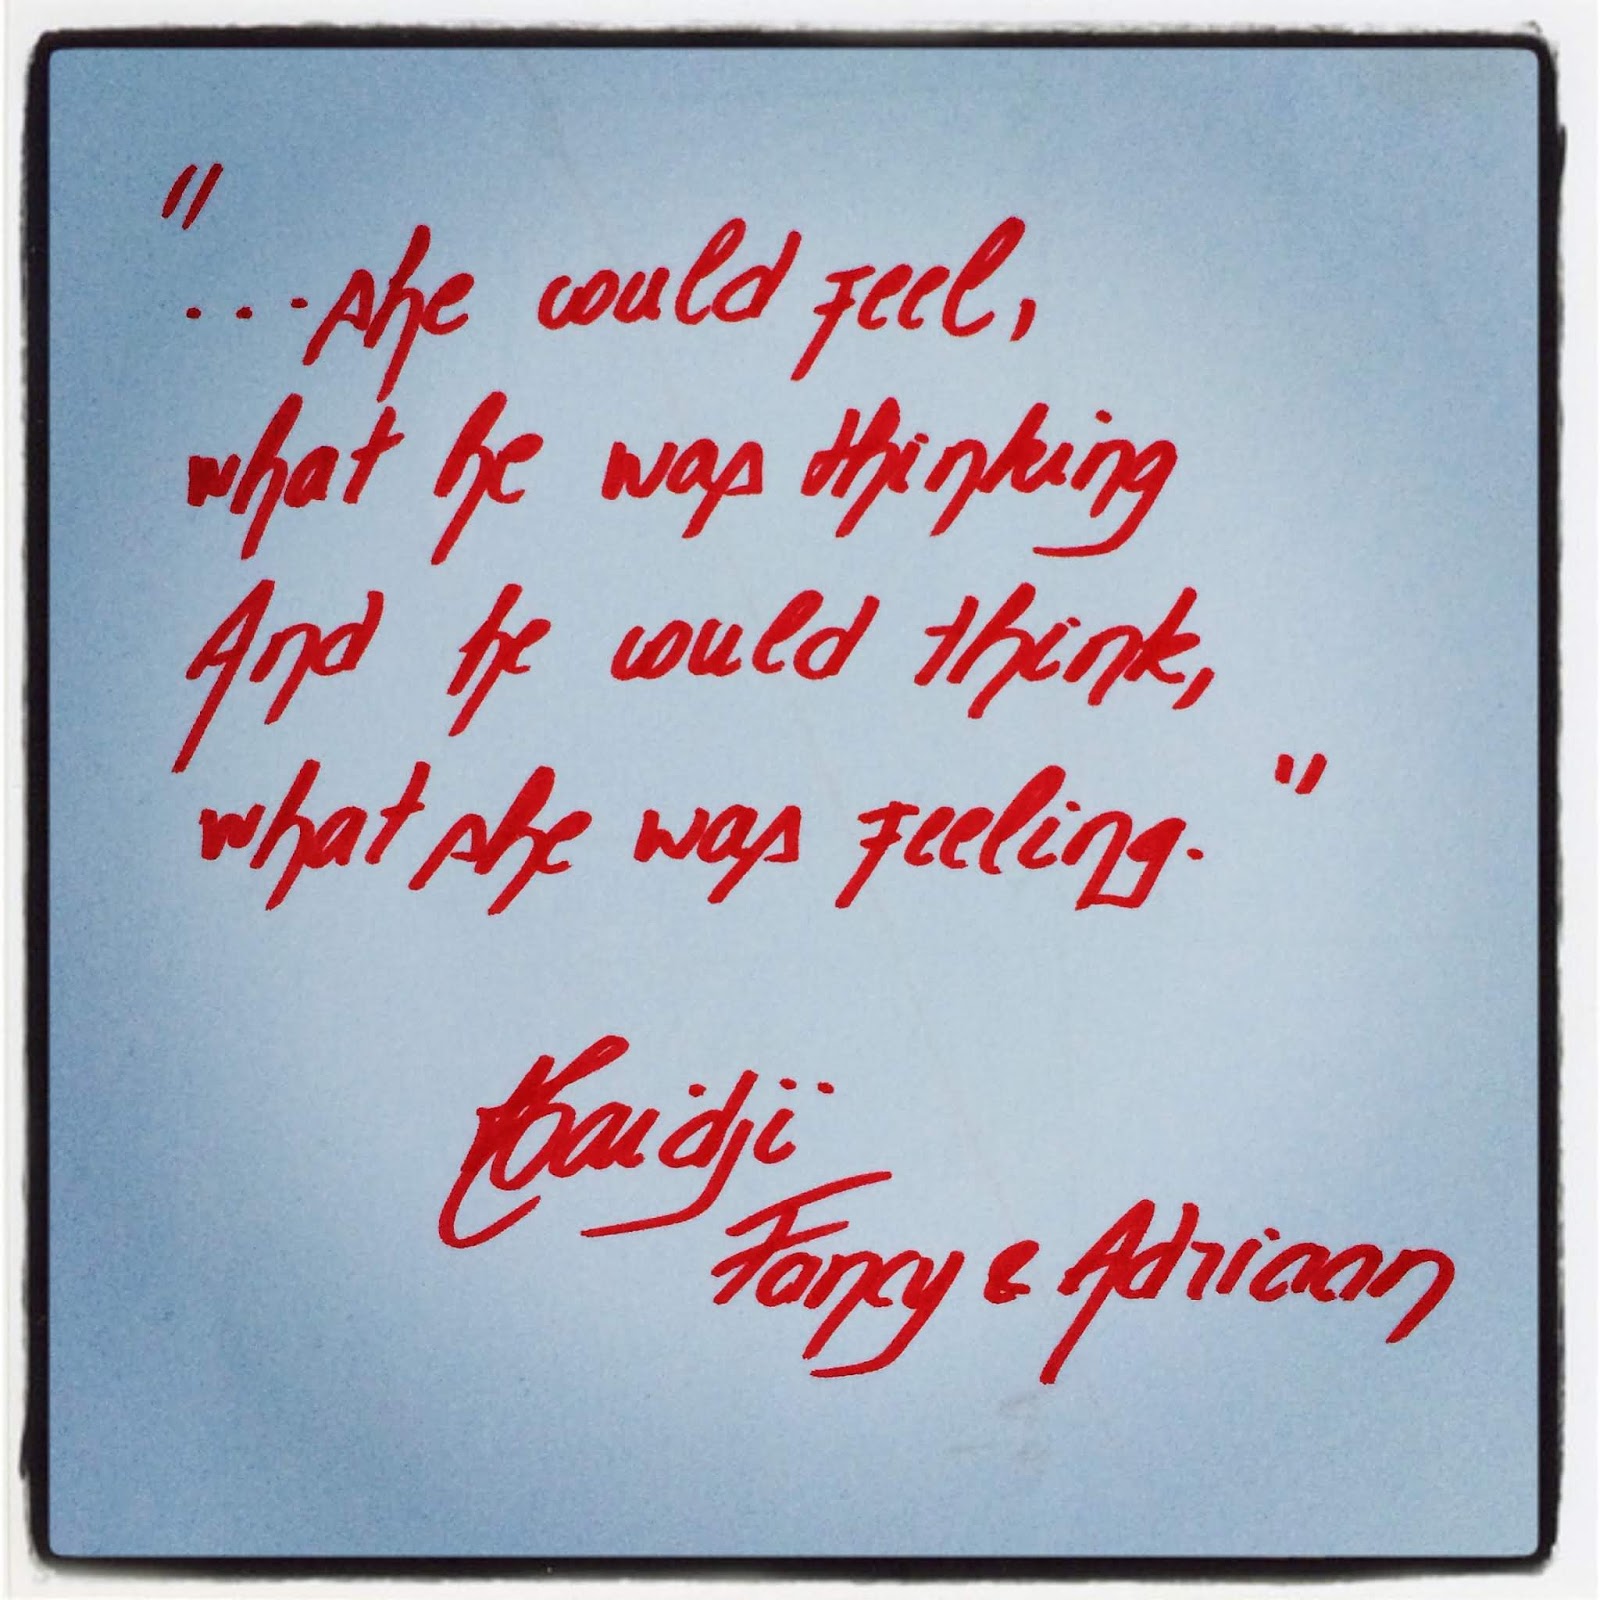 "
...she could feel,
what he was thinking
And he could think,
what she was feeling."
Haidji
Fancy & Adriaan